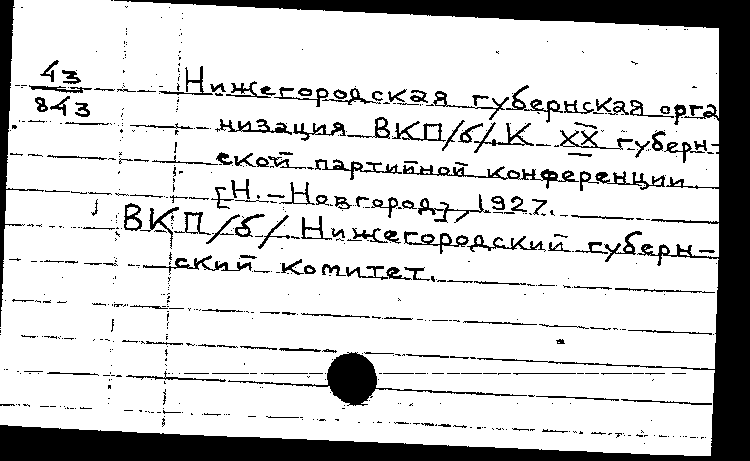 43
843
Нижегородская губернская орга
низация ВКП/б/. К XX губерн-
ской партийной конференции.
[Н.-Новгород], 1927.
ВКП/б/. Нижегородский губерн-
ский комитет.